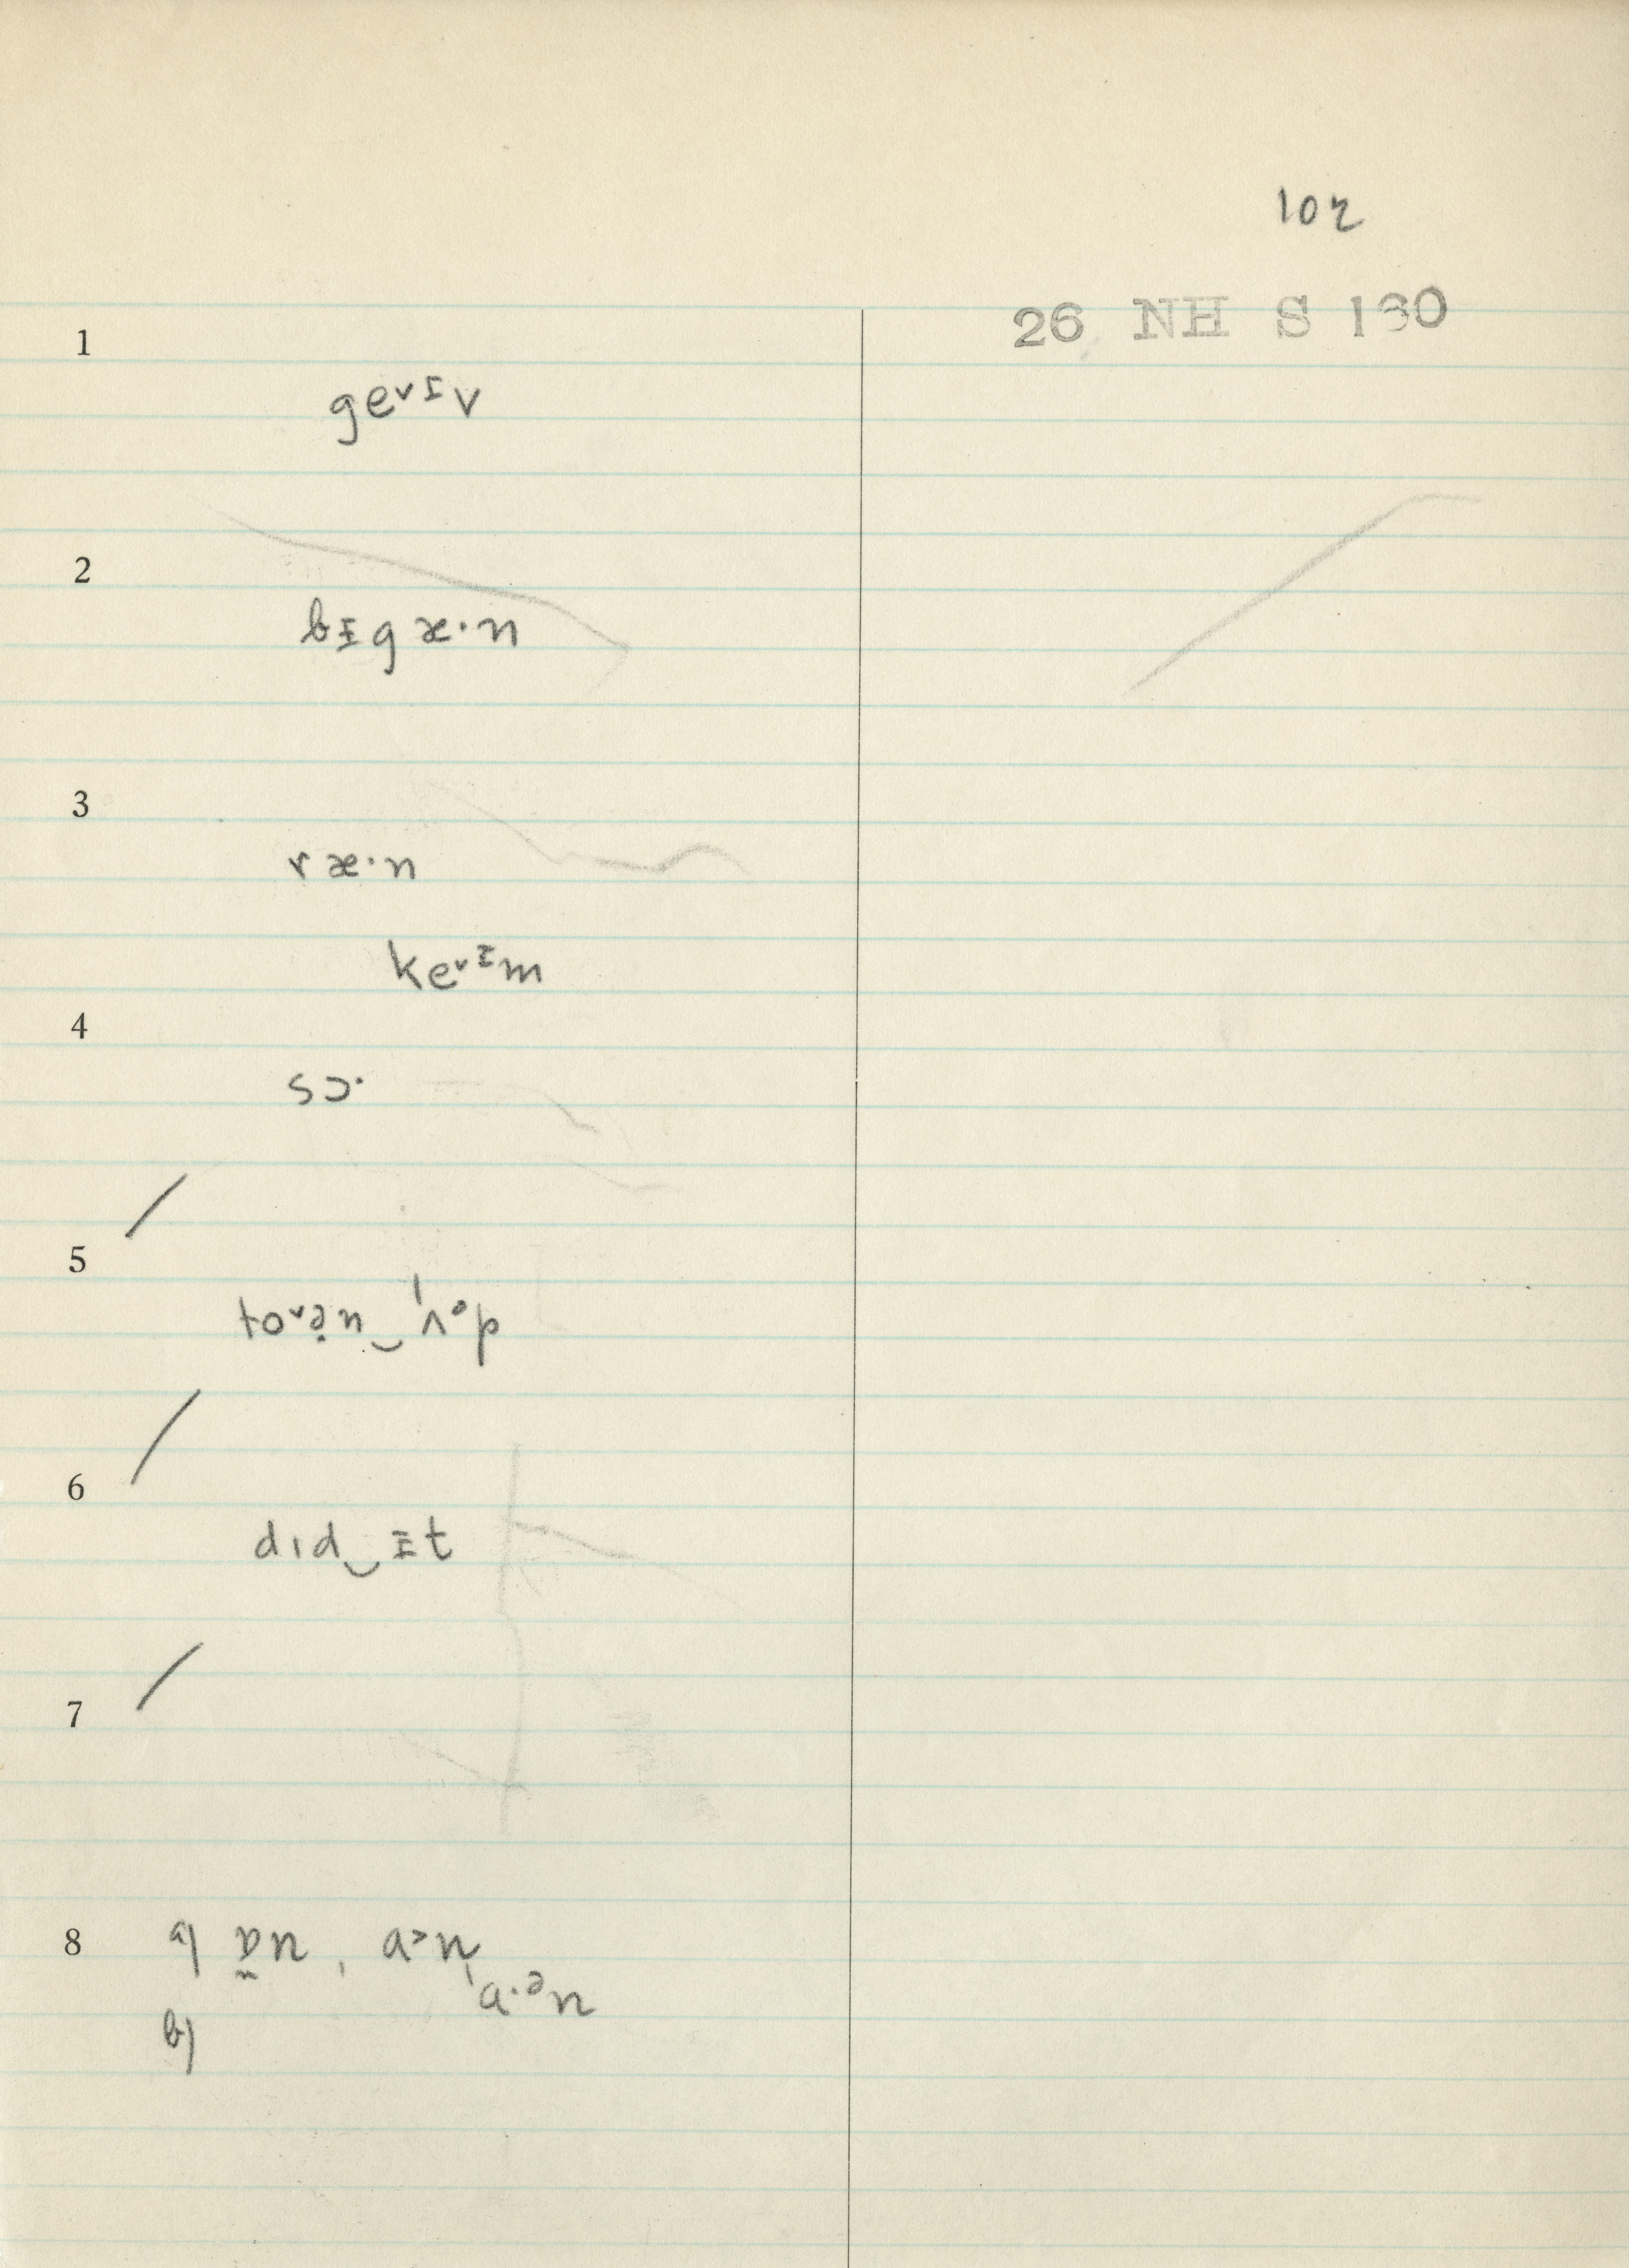 102
26 NH S 130
1
ge˅ᶦv
2
bɪgæ·n
3
ræ·n
ke˅ᶦm
4
sɔ·
5
to˅ə̣n‿ˈʌ°p
6
dɪd‿ɪt
7
8 a) ɒ̰n, a˃n,
a·ᵊn
b)